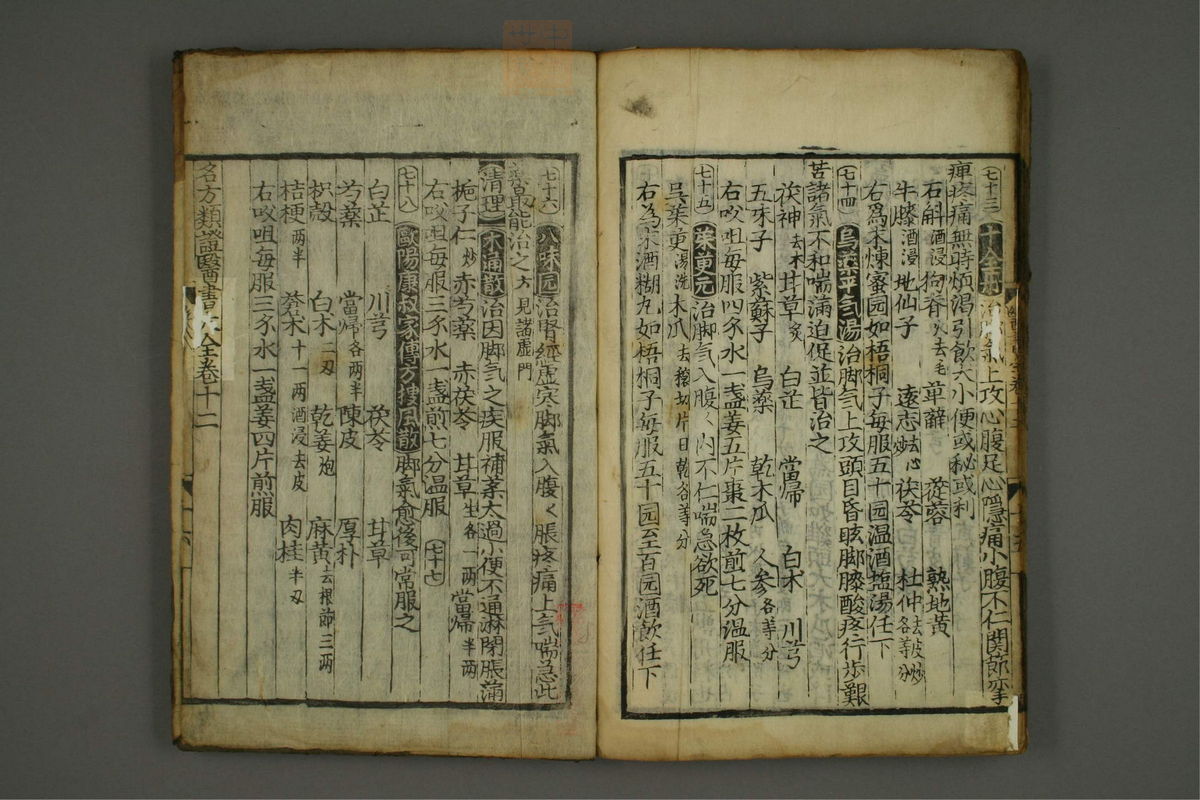 七十三 十全丹 治脚氣上攻心腹足心隱痛小腹不仁関節挛
痺疼痛無時煩渴引飲大小便或秘或利
石斛酒浸 狗脊火去毛 萆薢 蓯蓉 熟地黄
牛膝酒浸 地仙子 遠志炒去心 茯苓 杜仲去皮炒各等分
右爲末煉蜜园如梧桐子每服五十园温酒塩湯任下
七十四 烏藥平气湯 治脚气上攻頭目昏眩脚膝酸疼行步艱
苦諸氣不和喘滿迫促並皆治之
茯神去木 甘草炙 白芷 當帰 白朮 川芎
五味子 紫蘇子 烏藥 乾木瓜 人參各等分
右㕮咀每服四分水一盞姜五片棗二枚煎七分温服
七十五 茱萸元 治脚气入腹〻内不仁喘急欲死
吳茱萸湯洗 木瓜去穰切片日乾各等分
右為末酒糊丸如梧桐子每服五十园至百园酒飲任下
七十六 八味园 治腎經虛寒脚氣入腹〻脹疼痛上气喘急此
藥最能治之方見諸虛門
清理 木通散 治因脚气之疾服補藥太過小便不通淋閉脹滿
梔子仁炒 赤芍藥 赤茯苓 甘草生各一两 當帰半两
右㕮咀每服三分水一盞煎七分温服 七十七
七十八 歐陽康叔家傳方搜风散 脚氣愈後可常服之
白芷 川芎 茯苓 甘草
芍藥 當帰各两半 陳皮 厚朴
枳殻 白朮二刃 乾姜炮 麻黄去根節三两
桔梗两半 蒼朮十一两酒浸去皮 肉桂半刃
右㕮咀每服三分水一盞姜四片煎服
名方類證醫書大全卷十二